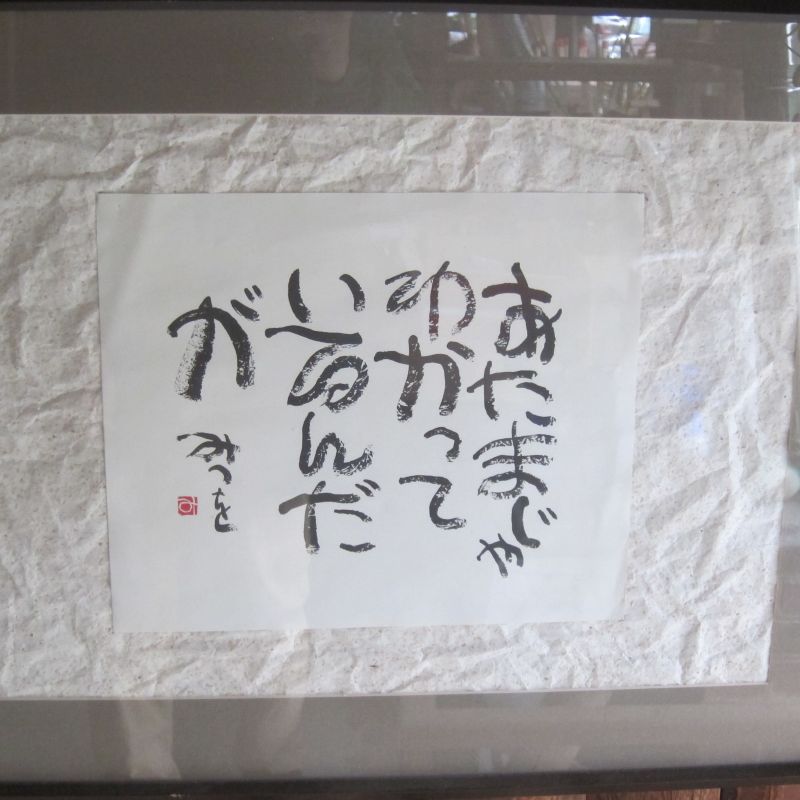 あたまじゃ
わかって
いるんだ
が
みつを